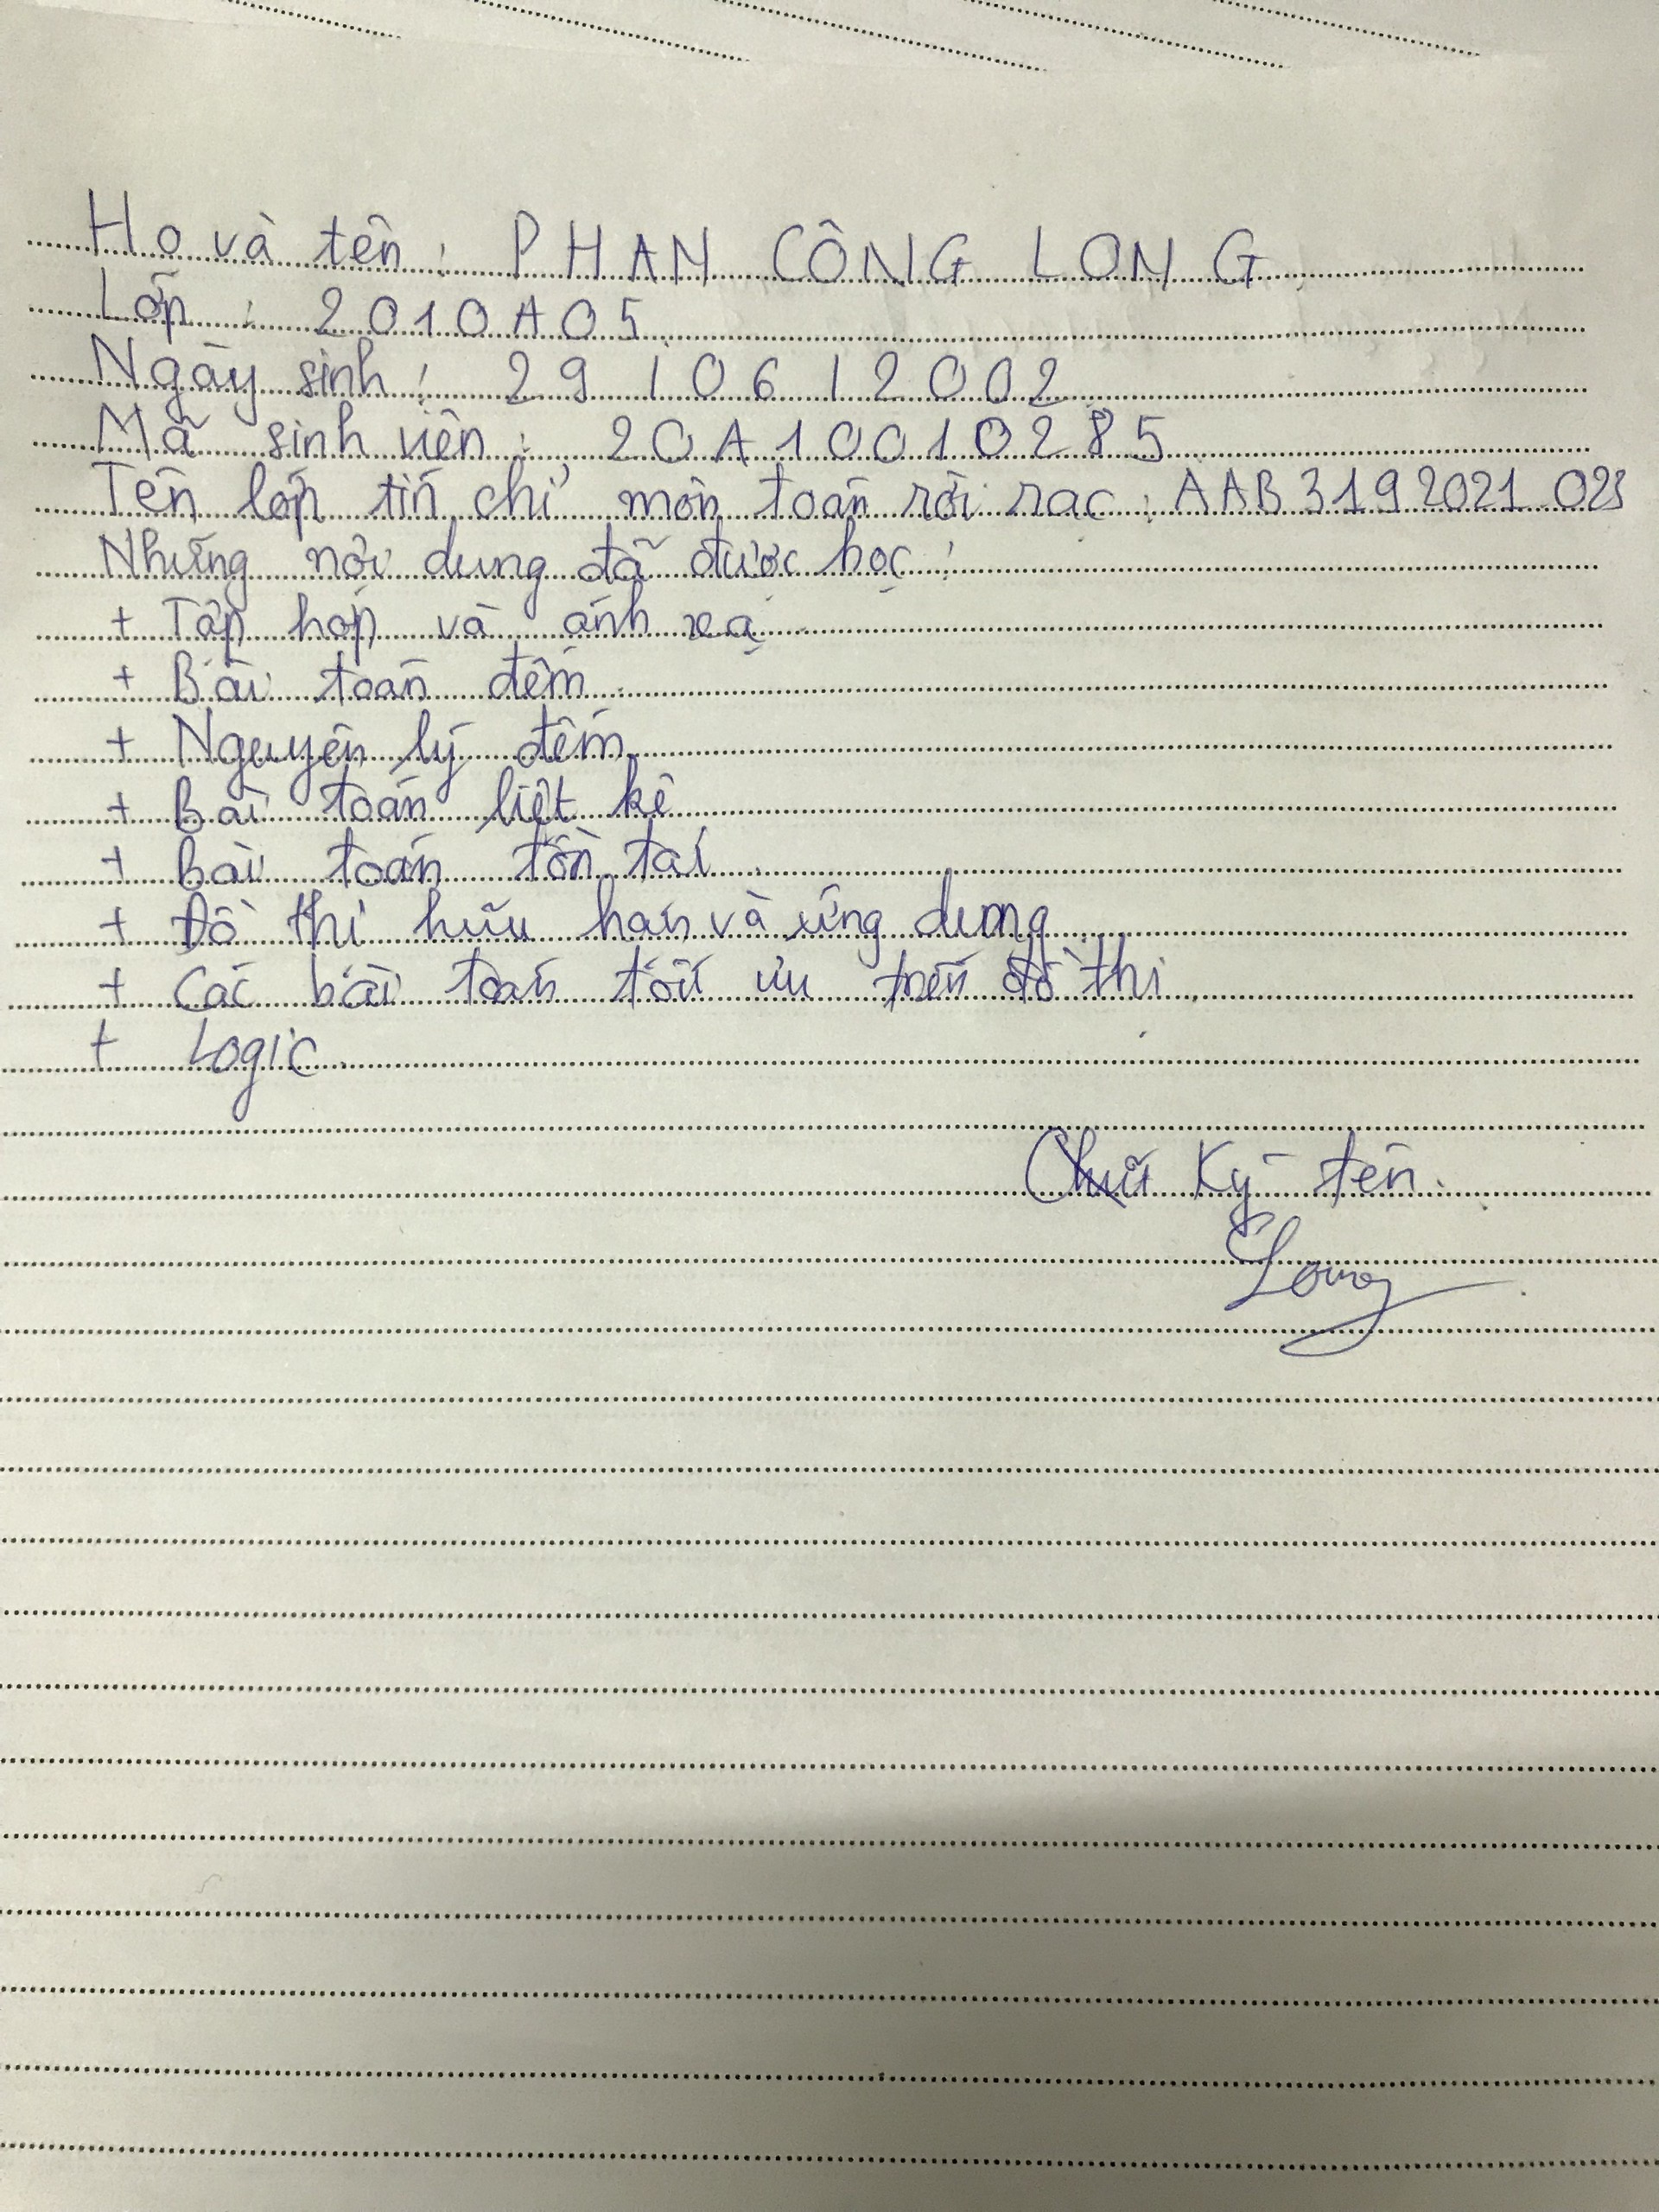 Họ và tên : PHAN CÔNG LONG
Lớp : 2010A05
Ngày sinh : 29/06/2002
Mã sinh viên : 20A10010285
Tên lớp tín chỉ môn toán rời rạc : AAB3192021_02
Những nội dung đã được học :
+ Tập hợp và ánh xạ
+ Bài toán đếm
+ Nguyên lý đếm
+ Bài toán liệt kê
+ Bài toán tồn tại
+ Đồ thị hữu hạn và ứng dụng
+ Các bài toán tối ưu trên đồ thị
+ Logic
Chữ ký tên
Long